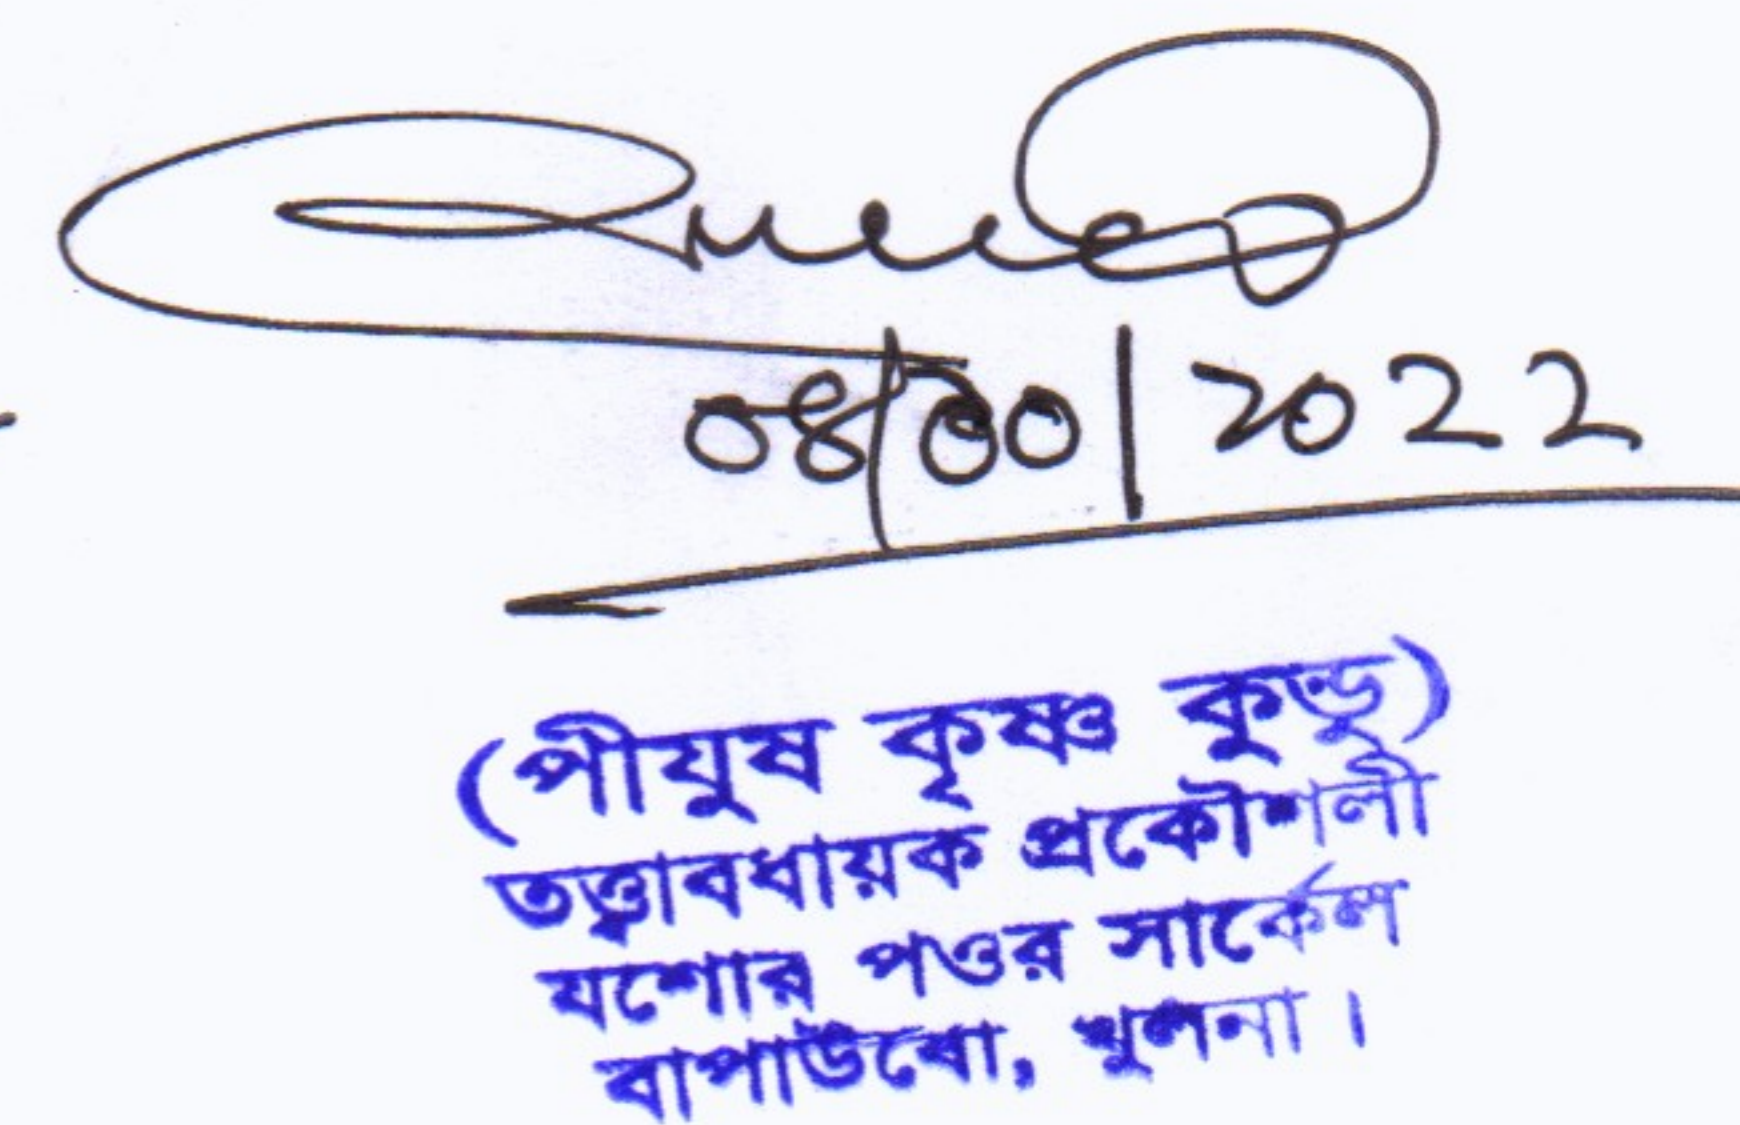 2022
(পীযুষ কৃষ্ণ কুন্ডু)
তত্ত্বাবধায়ক প্রকৌশলী
যশোর পওর সার্কেল
বাপাউবো, খুলনা।